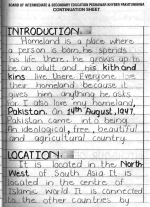 BOARD OF INTERMEDIATE & SECONDARY EDUCATION PESHAWAR KHYBER PAKHTUNKHWA
CONTINUATION SHEET
INTRODUCTION:
Homeland is a place where
a person is born, he spends
his life there, he grows up to
be an adult and his kith and
kins live there. Everyone love
their homeland because it
gives him anything he asks
for. I also love my homeland,
Pakistan. On 14th August, 1947,
Pakistan came into being.
An ideological, free, beautiful
and agricultural country.
LOCATION:
It is located in the North-
West of South Asia. It is
located in the centre of
Islamic World. It is connected
to the other countries by